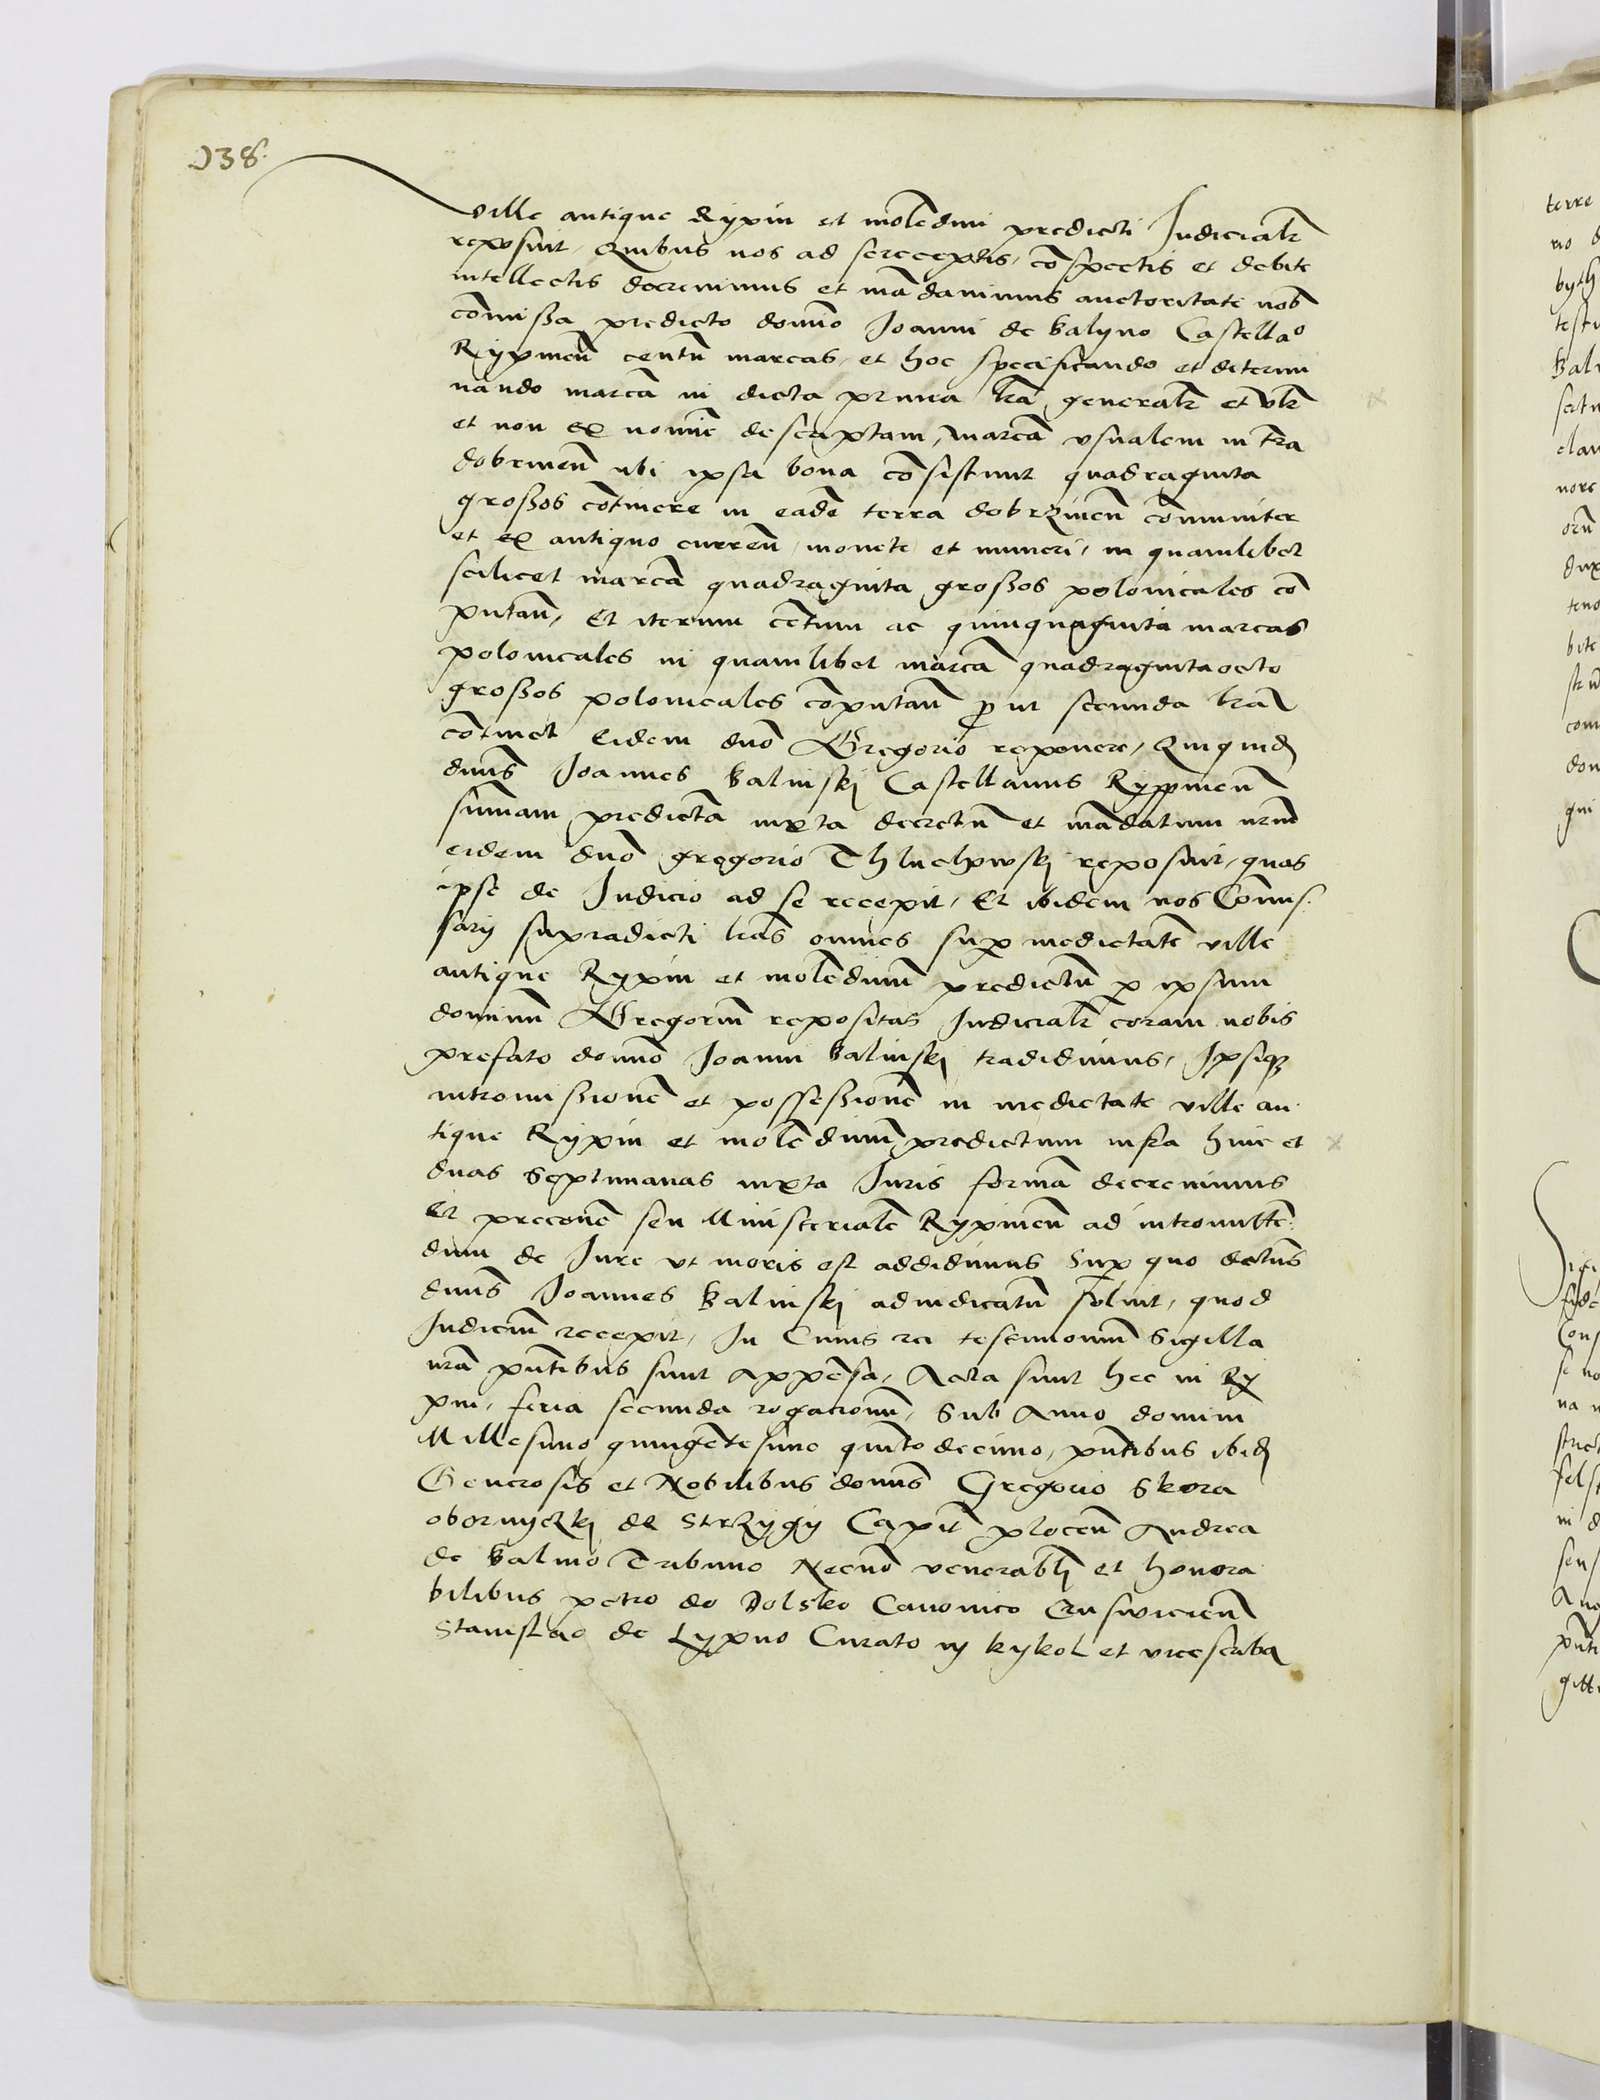 138.
ville antique Rypin et mole͞dini predicti Judicialr͞
reposuit, Quibus nos ad se receptis, co͞spectis et debite
intellectis decrevimus et ma͞davimus auctoritate nob͞
co͞missa predicto domi͞o Joanni de Balyno Castella͞o
Rypinen͞ centu͞ marcas, et hoc specificando et determi
nando marca͞ in dicta prima lr͞a generalr͞ et vlr͞
et non ex nomi͞e descriptam, marca͞ usualem in tr͞a
dobrinen͞ ubi ipsa bona co͞sistunt quadraginta
grossos co͞tinere in eade͞ terra dobrzinen͞ co͞muniter
et ex antiquo curren͞ monete et numeri, in quamlibet
scilicet marca͞ quadraginta grossos polonicales co͞
putan͞, Et iterum ce͞tum ac quinquaginta marcas
polonicales in quamlibet marca͞ quadraginta octo
grossos polonicales co͞putan͞ ꝓut secunda lr͞a
co͞tinet Eidem dn͞o Gregorio reponere, Quiquid͞
dn͞us Joannes Balinskj Castellanus Rypinen͞
summam predicta͞ iuxta decretu͞ et ma͞datum nr͞m
eidem dn͞o gregorio Thluchowskj reposuit, quas
ipse de Judicio ad se recepit, Et ibidem nos Co͞mis-
sarij supradicti lr͞as omnes suꝑ medietate͞ ville
antique Rypin et mole͞dinu͞ predictu͞ ꝑ ipsum
dominu͞ Gregoriu͞ repositas Judicialr͞ coram nobis
prefato domi͞o Joanni Balinskj tradidimus, Ipsiqꝫ
intromissione͞ et possessione͞ in medietate ville an
tique Rypin et mole͞dinu͞ predictum infra hinc et
duas Septimanas iuxta Juris forma͞ decrevimus
Et precone͞ seu Ministeriale͞ Rypinen͞ ad intromitte͞
dum de Jure ut moris est addidimus Suꝑ quo dictus
dn͞us Joannes Balinskj adiudicatu͞ solvit, quod
Judiciu͞ recepit, In Cuius rei testimoniu͞ Sigilla
nr͞a pn͞tibus sunt appe͞sa, Acta sunt hec in Ry
pin, feria secunda rogationu͞, Sub Anno domini
Millesimo quinge͞tesimo quinto decimo, pn͞tibus ibid͞
Generosis et Nobilibus domi͞s Gregorio Skora
obornyczkj de Strzygy Capit͞ plocen͞ Andrea
de Balino Tribuno Necno͞ venerabl͞ et honora
bilibus petro de Dolsko Canonico Crusvicien͞
Stanislao de Lypno Curato in kykol et vicescriba